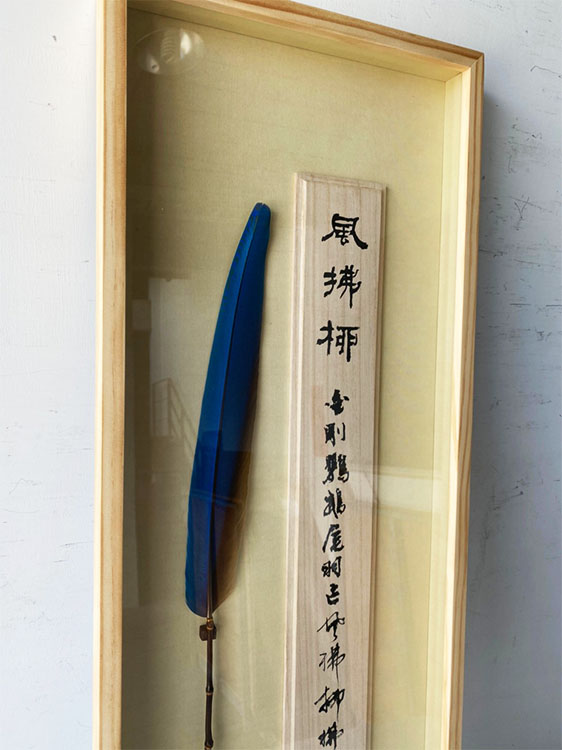 風拂柳
金剛鸚鵡尾羽 風拂柳拂